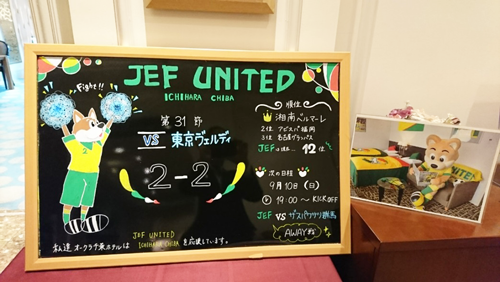 JEF UNITED
ICHIHARA CHIBA
Fight!!
第31節
VS 東京ヴェルディ
2-2
順位
湘南ベルマーレ
2位 アビスパ福岡
3位 名古屋グランパス
JEFは現在... 12位
次の日程
9月10日(日)
19:00~KICKOFF
JEF VS ザスパクサツ群馬
AWAY戦
私達オークラ千葉ホテルは JEF UNITED ICHIHARA CHIBA を応援しています。